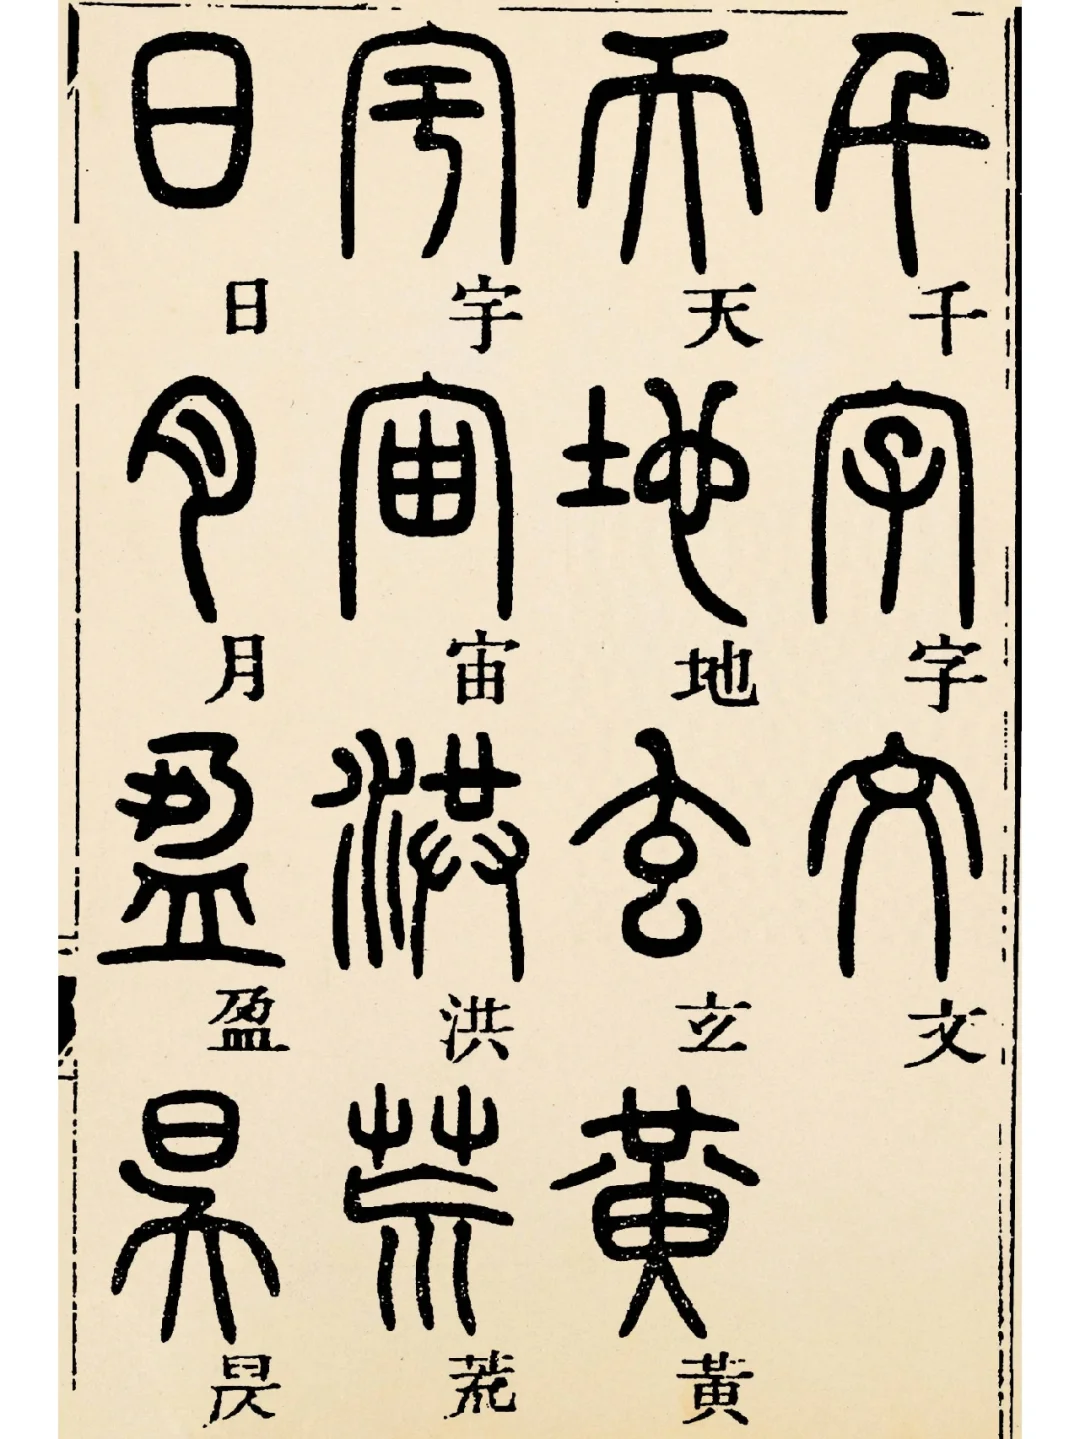 千字文
天地玄黃
宇宙洪荒
日月盈昃